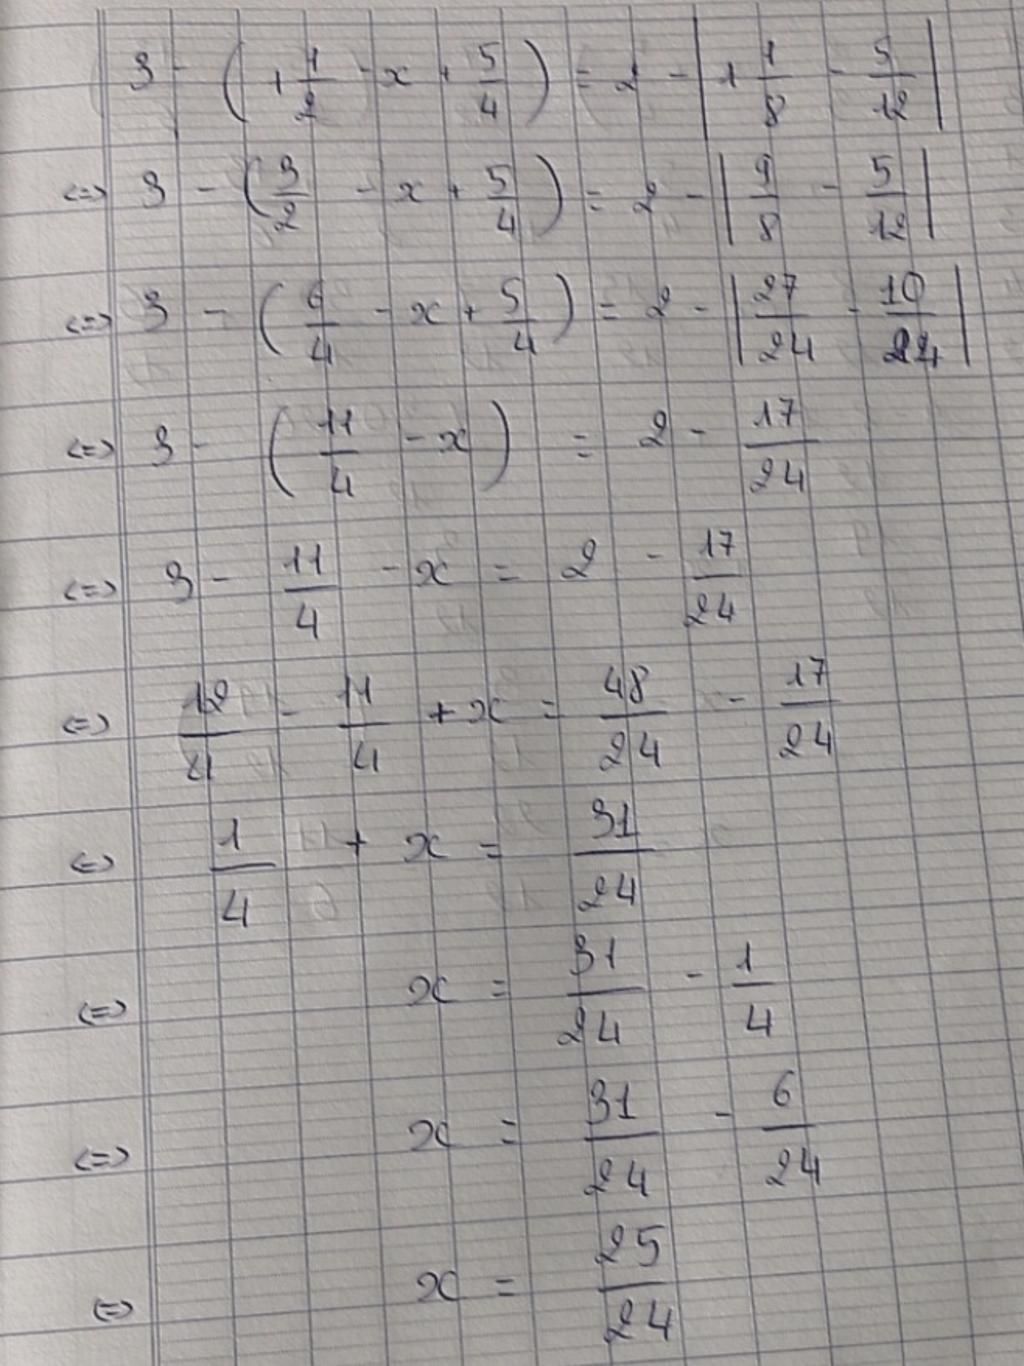 3 - ( 1 1/2 - x + 5/4 ) = 2 - | 1 1/8 - 5/12 |
<=> 3 - ( 3/2 - x + 5/4 ) = 2 - | 9/8 - 5/12 |
<=> 3 - ( 6/4 - x + 5/4 ) = 2 - | 27/24 - 10/24 |
<=> 3 - ( 11/4 - x ) = 2 - 17/24
<=> 3 - 11/4 - x = 2 - 17/24
<=> 12/4 - 11/4 + x = 48/24 - 17/24
<=> 1/4 + x = 31/24
<=> x = 31/24 - 1/4
<=> x = 31/24 - 6/24
<=> x = 25/24